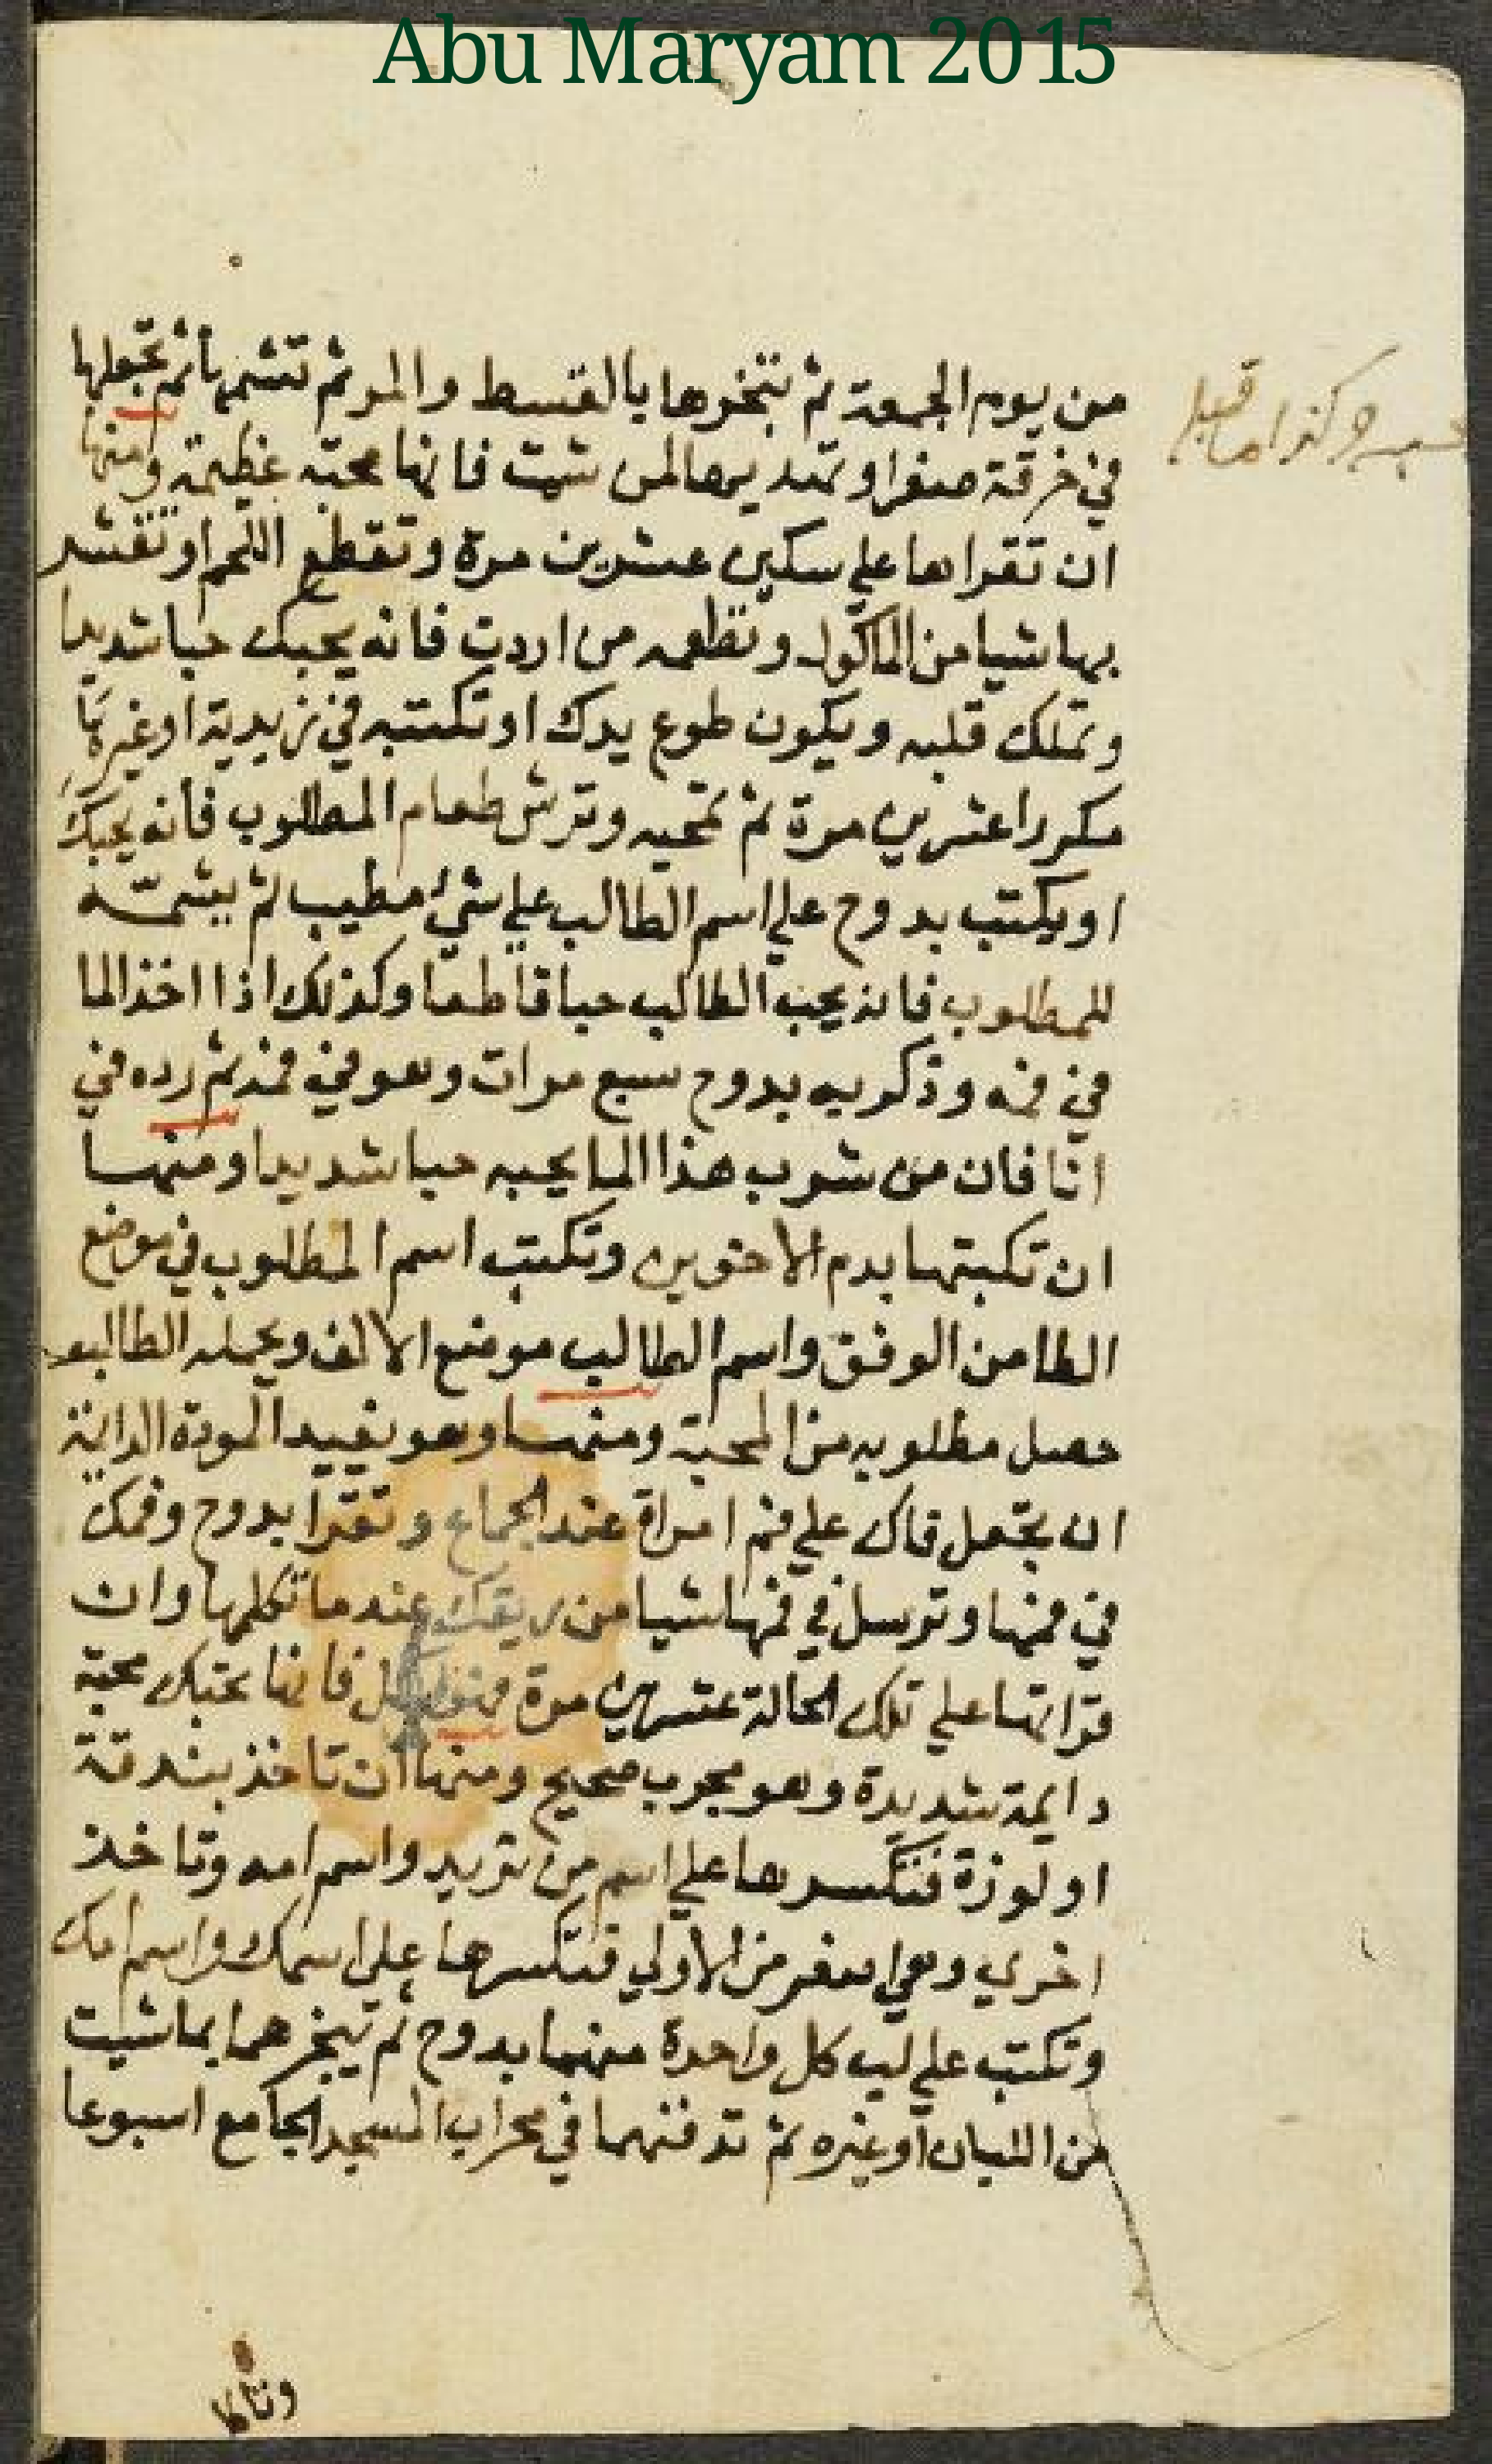 Abu Maryam 2015
من يوم الجمعة ثم تبخرها بالقسط والمر ثم تشمها ثم تجعلها
في خرقة صفرا وتهديها لمن شت فانها محبة عظيمة ومنها
ان تقراها علي سكين عشرين مرة وتقطع اللحم او تقشر
بها شيا من الماكول وتطعمه من اردت فانه يحبك حبا شديدا
وتملك قلبه ويكون طوع يدك او تكتبه في زيدية او غيرها
مكررا عشرين مرة ثم تمحيه وترش طعام المطلوب فانه يحبك
او يكتب بدوح علي اسم الطالب علي شيء مطيب ثم يشمه
للمطلوب فانه يحب الطالب حبا قاطعا وكذلك اذا اخذ الما
في فمه وذكر بدوح سبع مرات وهو في فمه ثم رده في
انا فان من شرب هذا الما يحبه حبا شديدا ومنها
ان تكبتها بدم الاخوين وتكتب اسم المطلوب في موضع
الطا من الوفق واسم الطالب موضع الالف ويحمله الطالب
حصل مطلوبه من المحبة ومنها وهو يفيد المودة الداية
ان تجعل فاك علي فم امراة عند الجماع وتقرا بدوح وفمك
في فمها وترسل في فمها شيا من ريقك عندما تكلمها وان
قراتها علي تلك الحالة عشرين مرة فانها تحبك محبة
دايمة شديدة وهو مجرب صحيح ومنها ان تاخذ بندقة
او لوزة فتكسرها علي اسم من تريد واسم امه وتاخذ
اخري وهي اصغر من الاولي فتكسرها علي اسمك واسم امك
وتكتب علي لب كل واحدة منهما بدوح ثم تبخرهما بما شيت
من اللبان او غيره ثم تدفنهما في محراب المسجد الجامع اسبوعا